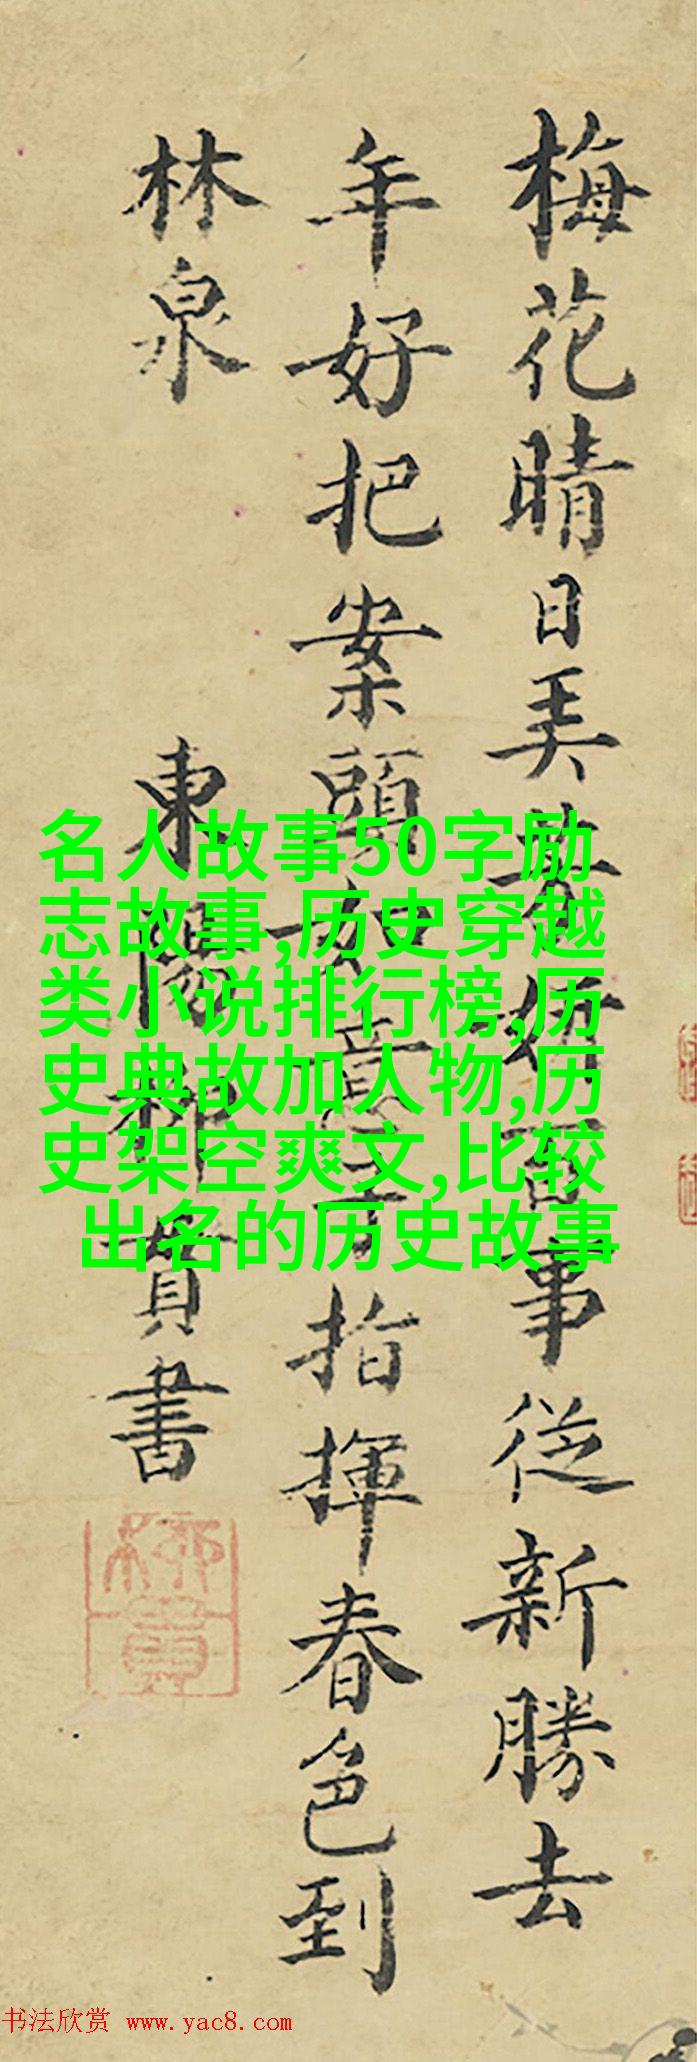 梅花晴日美妍百事従新勝去
年好把案頭如意子指揮春色到
林泉
東陽柳貫書
柳貫
名人故事50字励
志故事,历史穿越
类小说排行榜,历
史典故加人物,历
史架空爽文,比较
出名的历史故事
书法欣赏 www.yac8.com